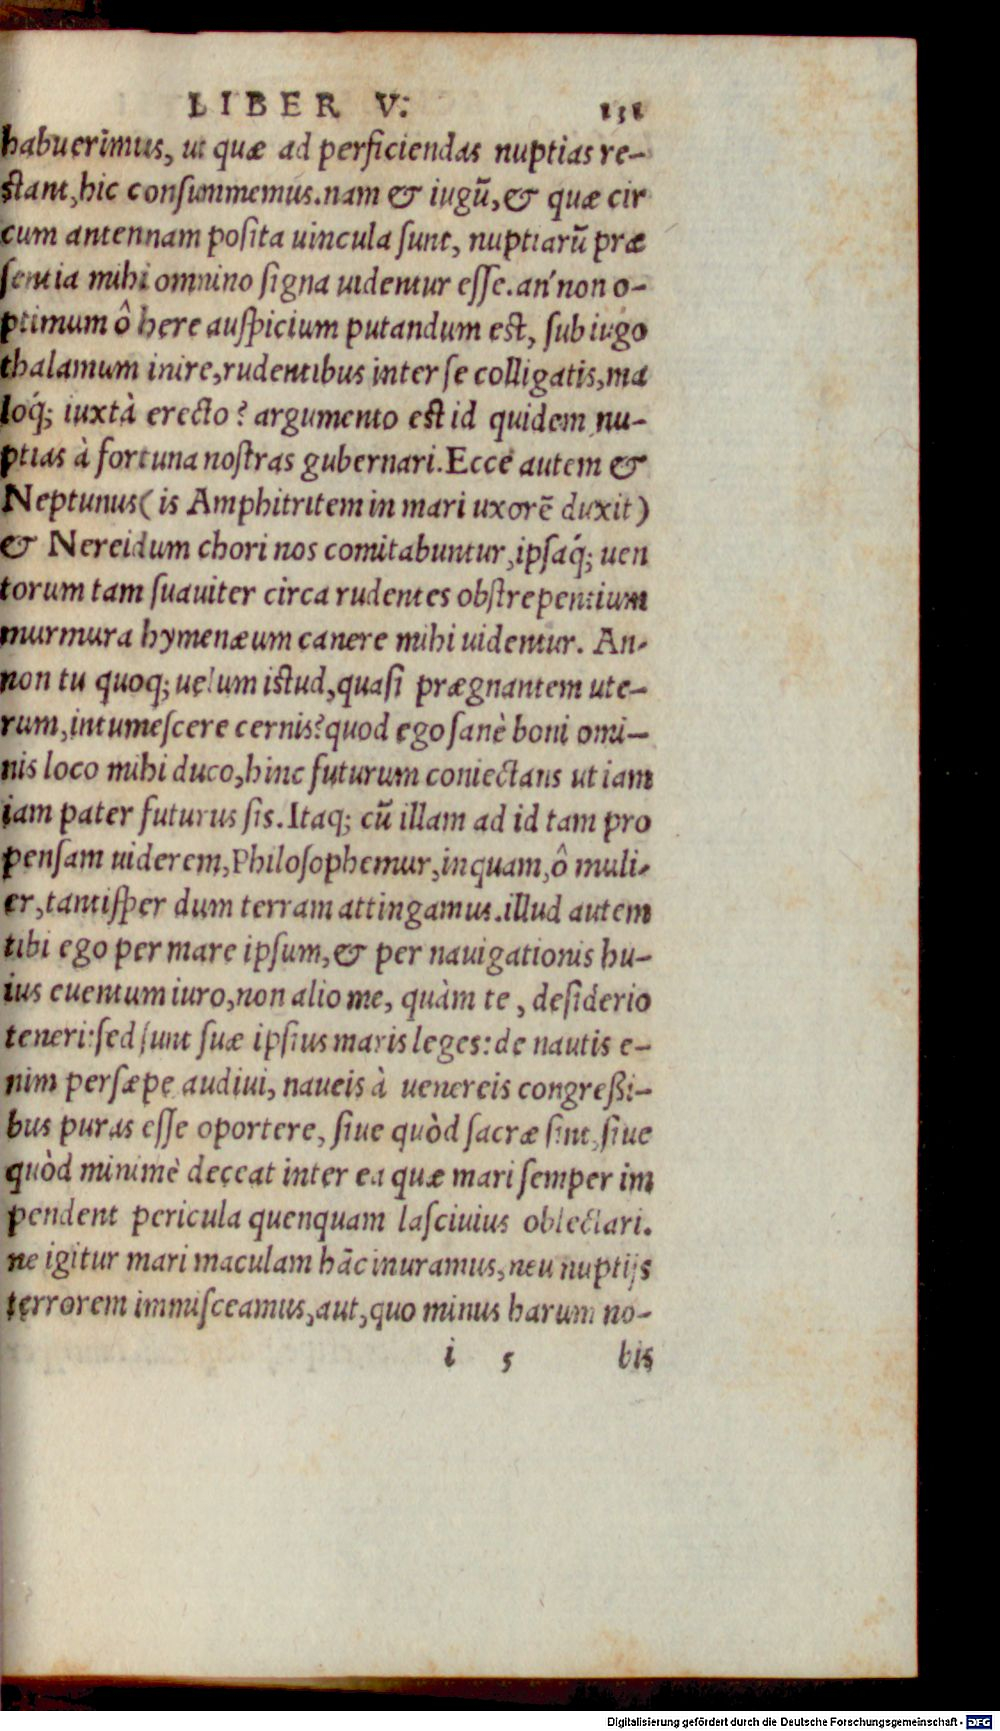 LIBER V. 131
habuerimus, ut quæ ad perficiendas nuptias re-
stant, hic consummemus. nam & iugũ, & quæ cir
cum antennam posita uincula sunt, nuptiarũ præ
sentia mihi omnino signa uidentur esse. an' non o-
ptimum ô here auspicium putandum est, sub iugo
thalamum inire, rudentibus inter se colligatis, ma
loq́; iuxtà erecto? argumento est id quidem nu-
ptias à fortuna nostras gubernari. Ecce autem &
Neptunus (is Amphitritem in mari uxorẽ duxit)
& Nereidum chori nos comitabuntur, ipsaq́; uen
torum tam suauiter circa rudentes obstrepentium
murmura hymenæum canere mihi uidentur. An-
non tu quoq; uelum istud, quasi prægnantem ute-
rum, intumescere cernis? quod ego sanè boni omi-
nis loco mihi duco, hinc futurum coniectans ut iam
iam pater futurus sis. Itaq; cũ illam ad id tam pro
pensam uiderem, Philosophemur, inquam, ô muli-
er, tantisper dum terram attingamus. illud autem
tibi ego per mare ipsum, & per nauigationis hu-
ius euentum iuro, non alio me, quàm te, desiderio
teneri: sed sunt suæ ipsius maris leges: de nautis e-
nim persæpe audiui, naueis à uenereis congreßi-
bus puras esse oportere, siue quòd sacræ sint, siue
quòd minimè deceat inter ea quæ mari semper im
pendent pericula quenquam lasciuius oblectari.
ne igitur mari maculam hãc inuramus, neu nuptijs
terrorem immisceamus, aut, quo minus harum no-
i 5 bis
Digitalisierung gefördert durch die Deutsche Forschungsgemeinschaft - DFG